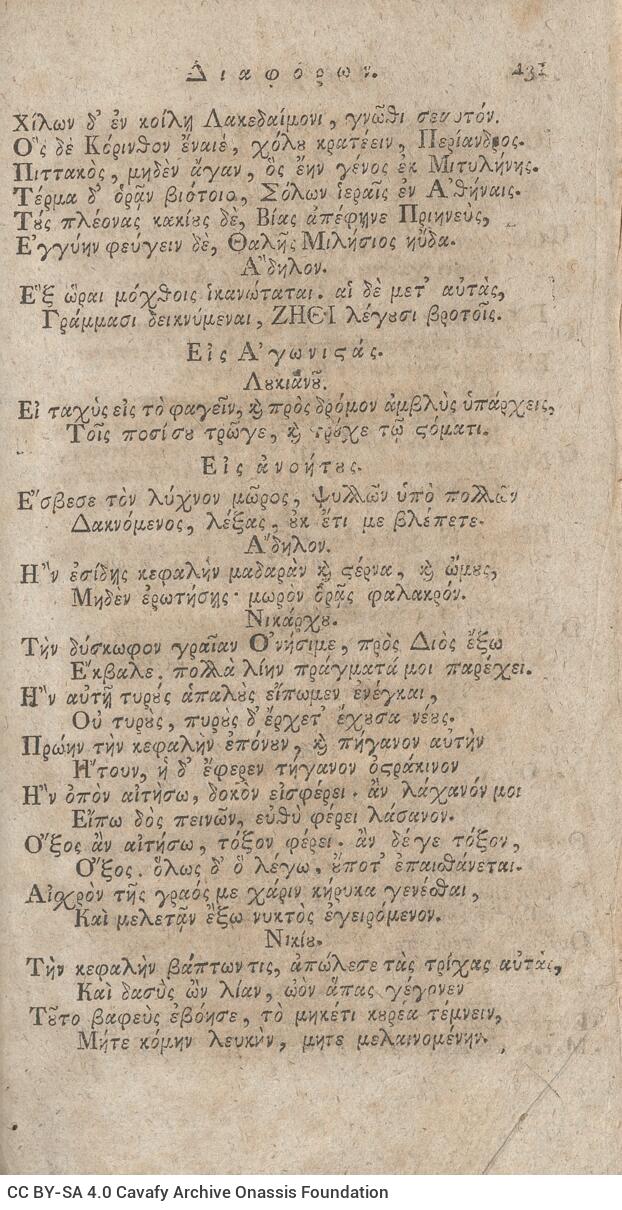 Διαφόρων. 431
Χίλων δ' ἐν κοίλῃ Λακεδαίμονι, γνῶθι σεαυτόν.
Ὃς δὲ Κόρινθον ἔναιέ, χόλου κρατέειν, Περίανδρος.
Πιττακὸς, μηδὲν ἄγαν, ὃς ἔην γένος ἐκ Μιτυλήνης.
Τέρμα δ' ὁρᾷν βιότοιο, Σόλων ἱεραῖς ἐν Ἀθήναις.
Τοὺς πλέονας κακίους δὲ, Βίας ἀπέφηνε Πριηνεὺς,
Ἐγγύην φεύγειν δὲ, Θαλῆς Μιλήσιος ηὔδα.
Ἄδηλον.
Ἓξ ὧραι μόχθοις ἱκανώταται. αἱ δὲ μετ' αὐτὰς,
Γράμμασι δεικνύμεναι, ΖΗΘΙ λέγουσι βροτοῖς.
Εἰς Ἀγωνιστάς.
Λουκιανοῦ.
Εἰ ταχὺς εἰς τὸ φαγεῖν, καὶ πρὸς δρόμον ἀμβλὺς ὑπάρχεις,
Τοῖς ποσί σου τρῶγε, καὶ τρέχε τῷ στόματι.
Εἰς ἀνοήτους.
Ἔσβεσε τὸν λύχνον μῶρος, ψυλλῶν ὑπὸ πολλῶν
Δακνόμενος, λέξας, οὐκ ἔτι με βλέπετε.
Ἄδηλον.
Ἢν ἐσίδῃς κεφαλὴν μαδαρὰν καὶ στέρνα, καὶ ὤμους,
Μηδὲν ἐρωτήσῃς· μωρὸν ὁρᾷς φαλακρόν.
Νικάρχου.
Τὴν δύσκωφον γραῖαν Ὀνήσιμε, πρὸς Διὸς ἔξω
Ἔκβαλε. πολλὰ λίην πράγματά μοι παρέχει.
Ἢν αὐτῇ τυροὺς ἁπαλοὺς εἴπωμεν ἐνέγκαι,
Οὐ τυροὺς, πυροὺς δ' ἔρχετ' ἔχουσα νέους.
Πρώην τὴν κεφαλὴν ἐπόνουν, καὶ πήγανον αὐτὴν
Ἤτουν, ἡ δ' ἔφερεν τήγανον ὀστράκινον
Ἢν ὀπὸν αἰτήσω, δοκὸν εἰσφέρει. ἂν λάχανόν μοι
Εἴπω δὸς πεινῶν, εὐθὺ φέρει λάσανον.
Ὄξος ἂν αἰτήσω, τόξον φέρει. ἂν δέ γε τόξον,
Ὄξος. ὅλως δ' ὃ λέγω, οὔποτ' ἐπαισθάνεται.
Αἰσχρὸν τῆς γραός με χάριν κήρυκα γενέσθαι,
Καὶ μελετᾷν ἔξω νυκτὸς ἐγειρόμενον.
Νικίου.
Τὴν κεφαλὴν βάπτων τις, ἀπώλεσε τὰς τρίχας αὐτὰς,
Καὶ δασὺς ὢν λίαν, ὠὸν ἅπας γέγονεν
Τοῦτο βαφεὺς ἐβόησε, τὸ μηκέτι κουρέα τέμνειν,
Μήτε κόμην λευκὴν, μήτε μελαινομένην.
CC BY-SA 4.0 Cavafy Archive Onassis Foundation